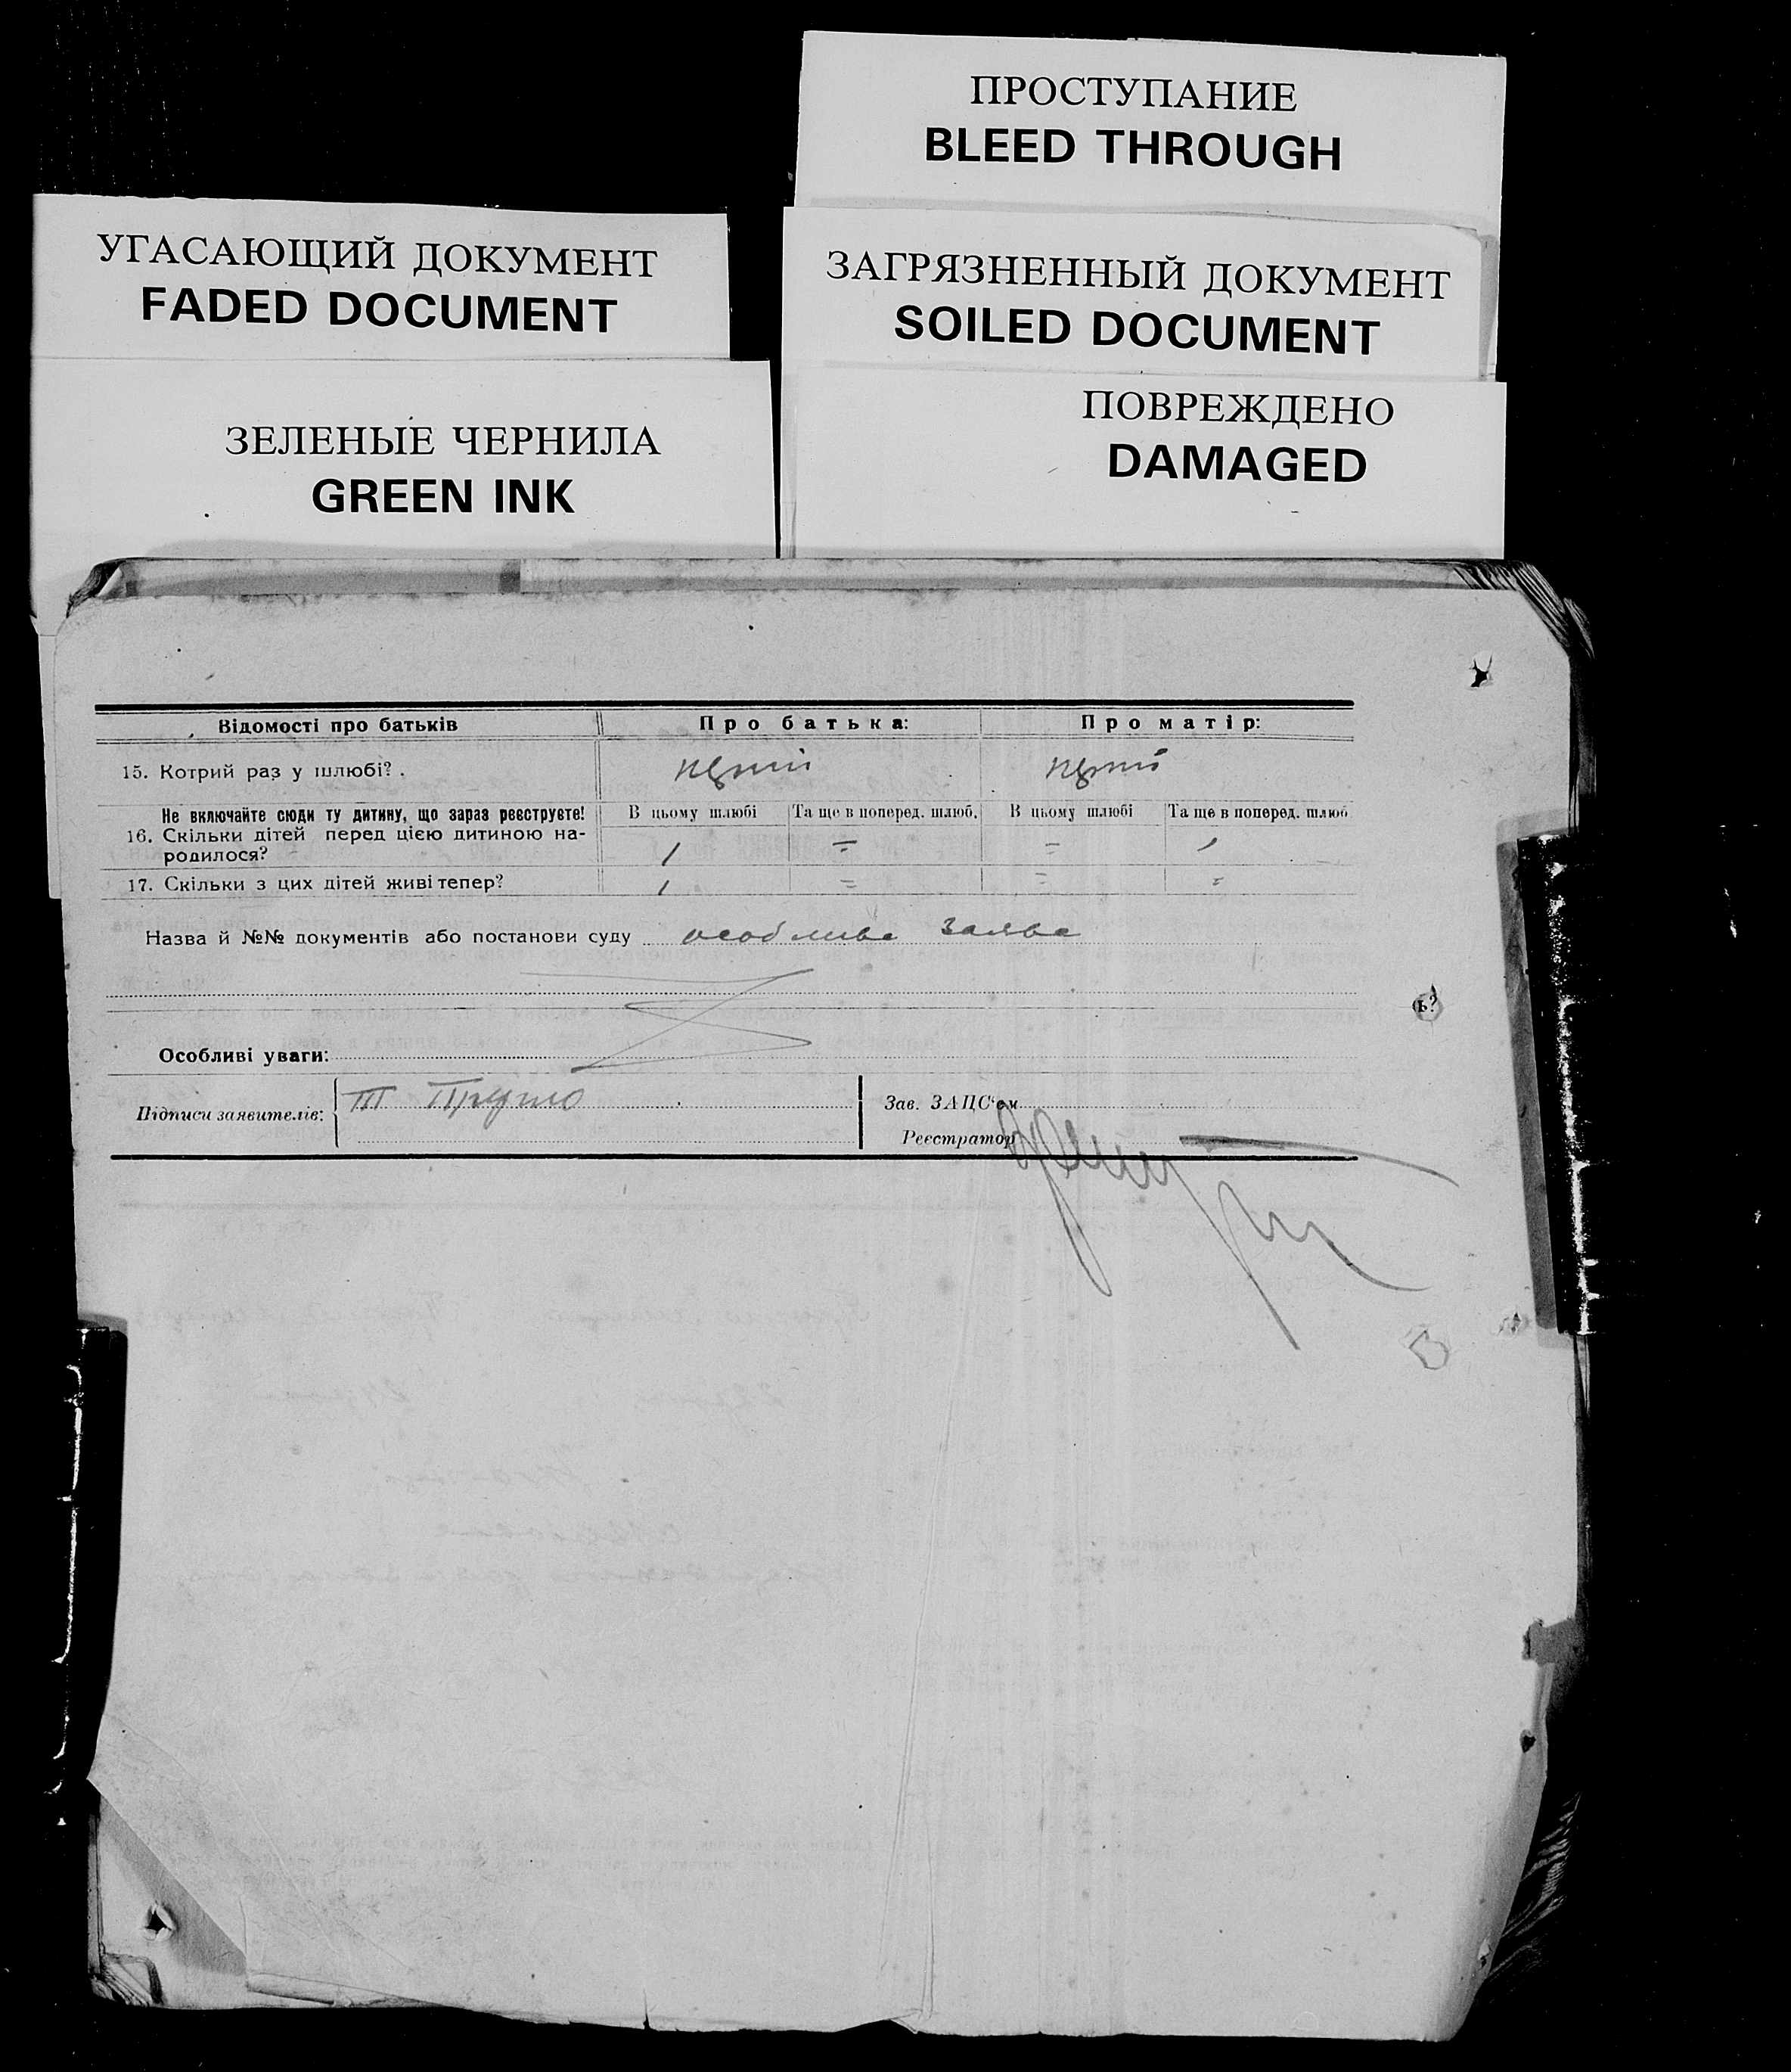 ПРОСТУПАНИЕ
BLEED THROUGH
УГАСАЮЩИЙ ДОКУМЕНТ
FADED DOCUMENT
ЗАГРЯЗНЕННЫЙ ДОКУМЕНТ
SOILED DOCUMENT
ЗЕЛЕНЫЕ ЧЕРНИЛА
GREEN INK
ПОВРЕЖДЕНО
DAMAGED
Відомості про батьків Про батька: Про матір:
15. Котрий раз у шлюбі?.
Не включайте сюди ту дитину, що зараз реєструєте! В цьому шлюбі Та ще в поперед. шлюб. В цьому шлюбі Та ще в поперед. шлюб
16. Скільки дітей перед цією дитиною на-
родилося? 1
17. Скільки з цих дітей живі тепер? 1
Назва й №№ документів або постанови суду особлива заява
ь?
Особливі уваги:
Підписи заявителів: Зав. ЗАЦС'ом
Реєстратор